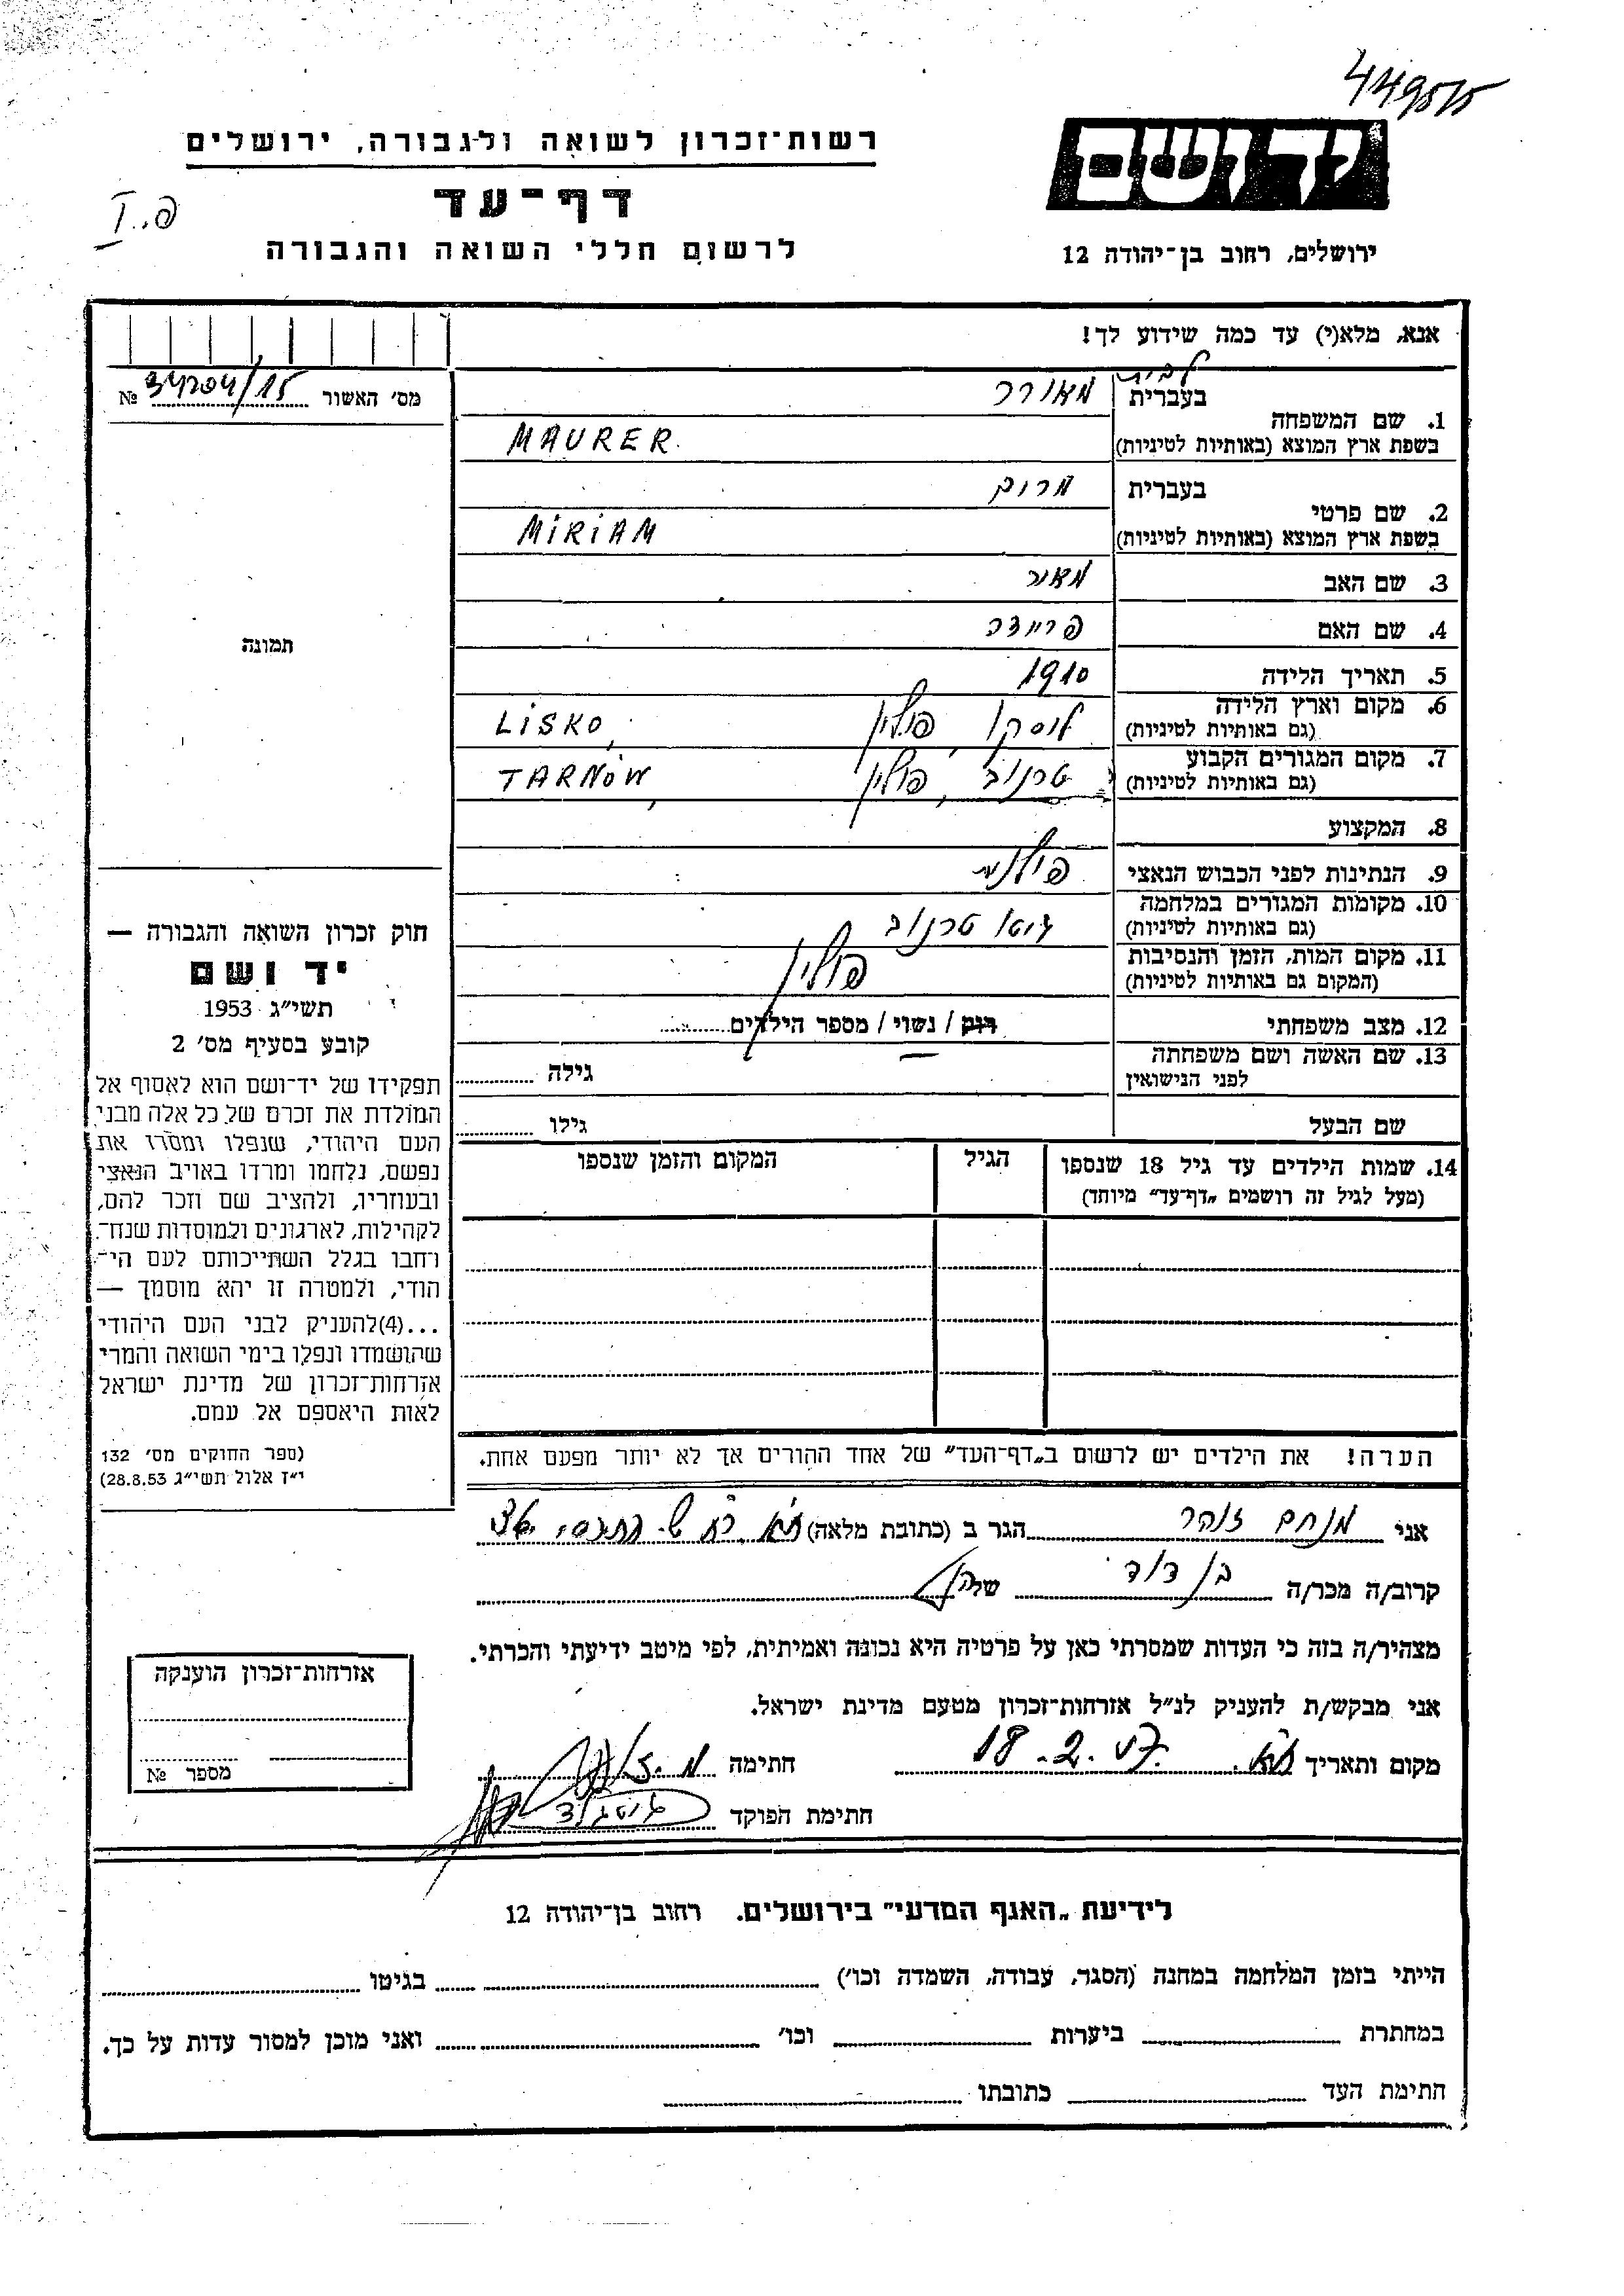 449515
רשות־זכרון לשואה ולגבורה, ירושלים
יד ושם
דף־עד
פ.. I
לרשום חללי השואה והגבורה
ירושלים, רחוב בן־יהודה 12
אנא, מלא(י) עד כמה שידוע לך!
מס׳ האשור № 34204/15
לבית
1. שם המשפחה
בעברית מאורר
בשפת ארץ המוצא (באותיות לטיניות) MAURER
2. שם פרטי
בעברית מרים
בשפת ארץ המוצא (באותיות לטיניות) MiRiAM
3. שם האב מאיר
4. שם האם פריידה
5. תאריך הלידה 1910
6. מקום וארץ הלידה
(גם באותיות לטיניות) ליסקו פולין LiSKO,
7. מקום המגורים הקבוע
(גם באותיות לטיניות) טרנוב, פולין TARNÓW,
8. המקצוע
9. הנתינות לפני הכבוש הנאצי פולנית
10. מקומות המגורים במלחמה
(גם באותיות לטיניות) גיטו טרנוב
11. מקום המות, הזמן והנסיבות
(המקום גם באותיות לטיניות) פולין
12. מצב משפחתי רוק / נשוי / מספר הילדים
13. שם האשה ושם משפחתה
לפני הנישואין גילה
שם הבעל גילו
14. שמות הילדים עד גיל 18 שנספו
(מעל לגיל זה רושמים „דף־עד״ מיוחד)
הגיל
המקום והזמן שנספו
הערה! את הילדים יש לרשום ב„דף־העד״ של אחד ההורים אך לא יותר מפעם אחת.
תמונה
חוק זכרון השואה והגבורה —
יד ושם
תשי״ג 1953
קובע בסעיף מס׳ 2
תפקידו של יד־ושם הוא לאסוף אל
המולדת את זכרם של כל אלה מבני
העם היהודי, שנפלו ומסרו את
נפשם, נלחמו ומרדו באויב הנאצי
ובעוזריו, ולהציב שם וזכר להם,
לקהילות, לארגונים ולמוסדות שנח־
רחבו בגלל השתייכותם לעם הי־
הודי, ולמטרה זו יהא מוסמך —
...(4)להעניק לבני העם היהודי
שהושמדו ונפלו בימי השואה והמרי
אזרחות־זכרון של מדינת ישראל
לאות היאספם אל עמם.
(ספר החוקים מס׳ 132
י״ז אלול תשי״ג 28.8.53)
אני מנחם זוהר הגר ב (כתובת מלאה) ת״א
קרוב/ה מכר/ה בן דוד של
מצהיר/ה בזה כי העדות שמסרתי כאן על פרטיה היא נכונה ואמיתית, לפי מיטב ידיעתי והכרתי.
אני מבקש/ת להעניק לנ״ל אזרחות־זכרון מטעם מדינת ישראל.
מקום ותאריך ת״א. 18.2.57 חתימה
חתימת הפוקד
אזרחות־זכרון הוענקה
מספר №
לידיעת „האגף המדעי״ בירושלים. רחוב בן־יהודה 12
הייתי בזמן המלחמה במחנה (הסגר, עבודה, השמדה וכו׳) בגיטו
במחתרת ביערות וכו׳ ואני מוכן למסור עדות על כך.
חתימת העד כתובתו